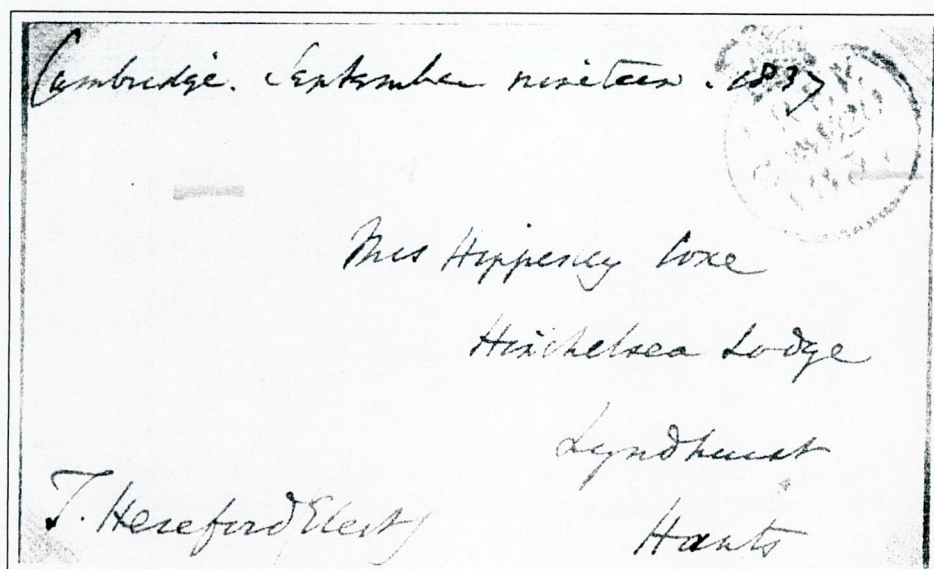 Cambridge. September nineteen. 1837
Mrs Hippesley Coxe
Hinchelsea Lodge
Lyndhurst
Hants
T. Hereford (Elect)